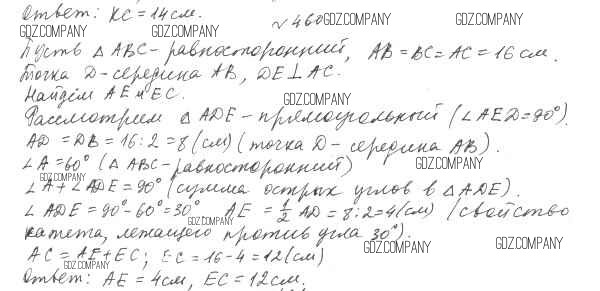 Ответ: КС = 14 см.
№ 460 GDZ.COMPANY GDZ.COMPANY
GDZ.COMPANY GDZ.COMPANY GDZ.COMPANY
Пусть Δ ABC - равносторонний, AB = BC = AC = 16 см.
Точка D - середина AB, DE ⊥ AC.
Найдём AE и EC. GDZ.COMPANY
Рассмотрим Δ ADE - прямоугольный (∠ AED = 90°).
AD = DB = 16 : 2 = 8 (см) (точка D - середина AB).
∠ A = 60° (Δ ABC - равносторонний) GDZ.COMPANY
GDZ.COMPANY
∠ A + ∠ ADE = 90° (сумма острых углов в Δ ADE).
∠ ADE = 90° - 60° = 30° AE = 1/2 AD = 8 : 2 = 4 (см) (свойство
GDZ.COMPANY
катета, лежащего против угла 30°). GDZ.COMPANY GDZ.COMPANY
AC = AE + EC; EC = 16 - 4 = 12 (см)
GDZ.COMPANY
Ответ: AE = 4 см, EC = 12 см.